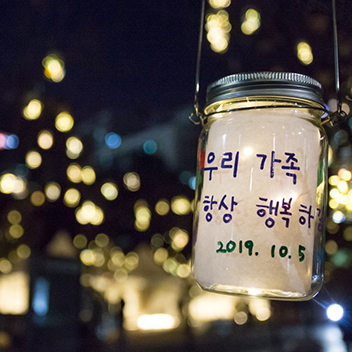 우리 가족
항상 행복하
2019. 10. 5